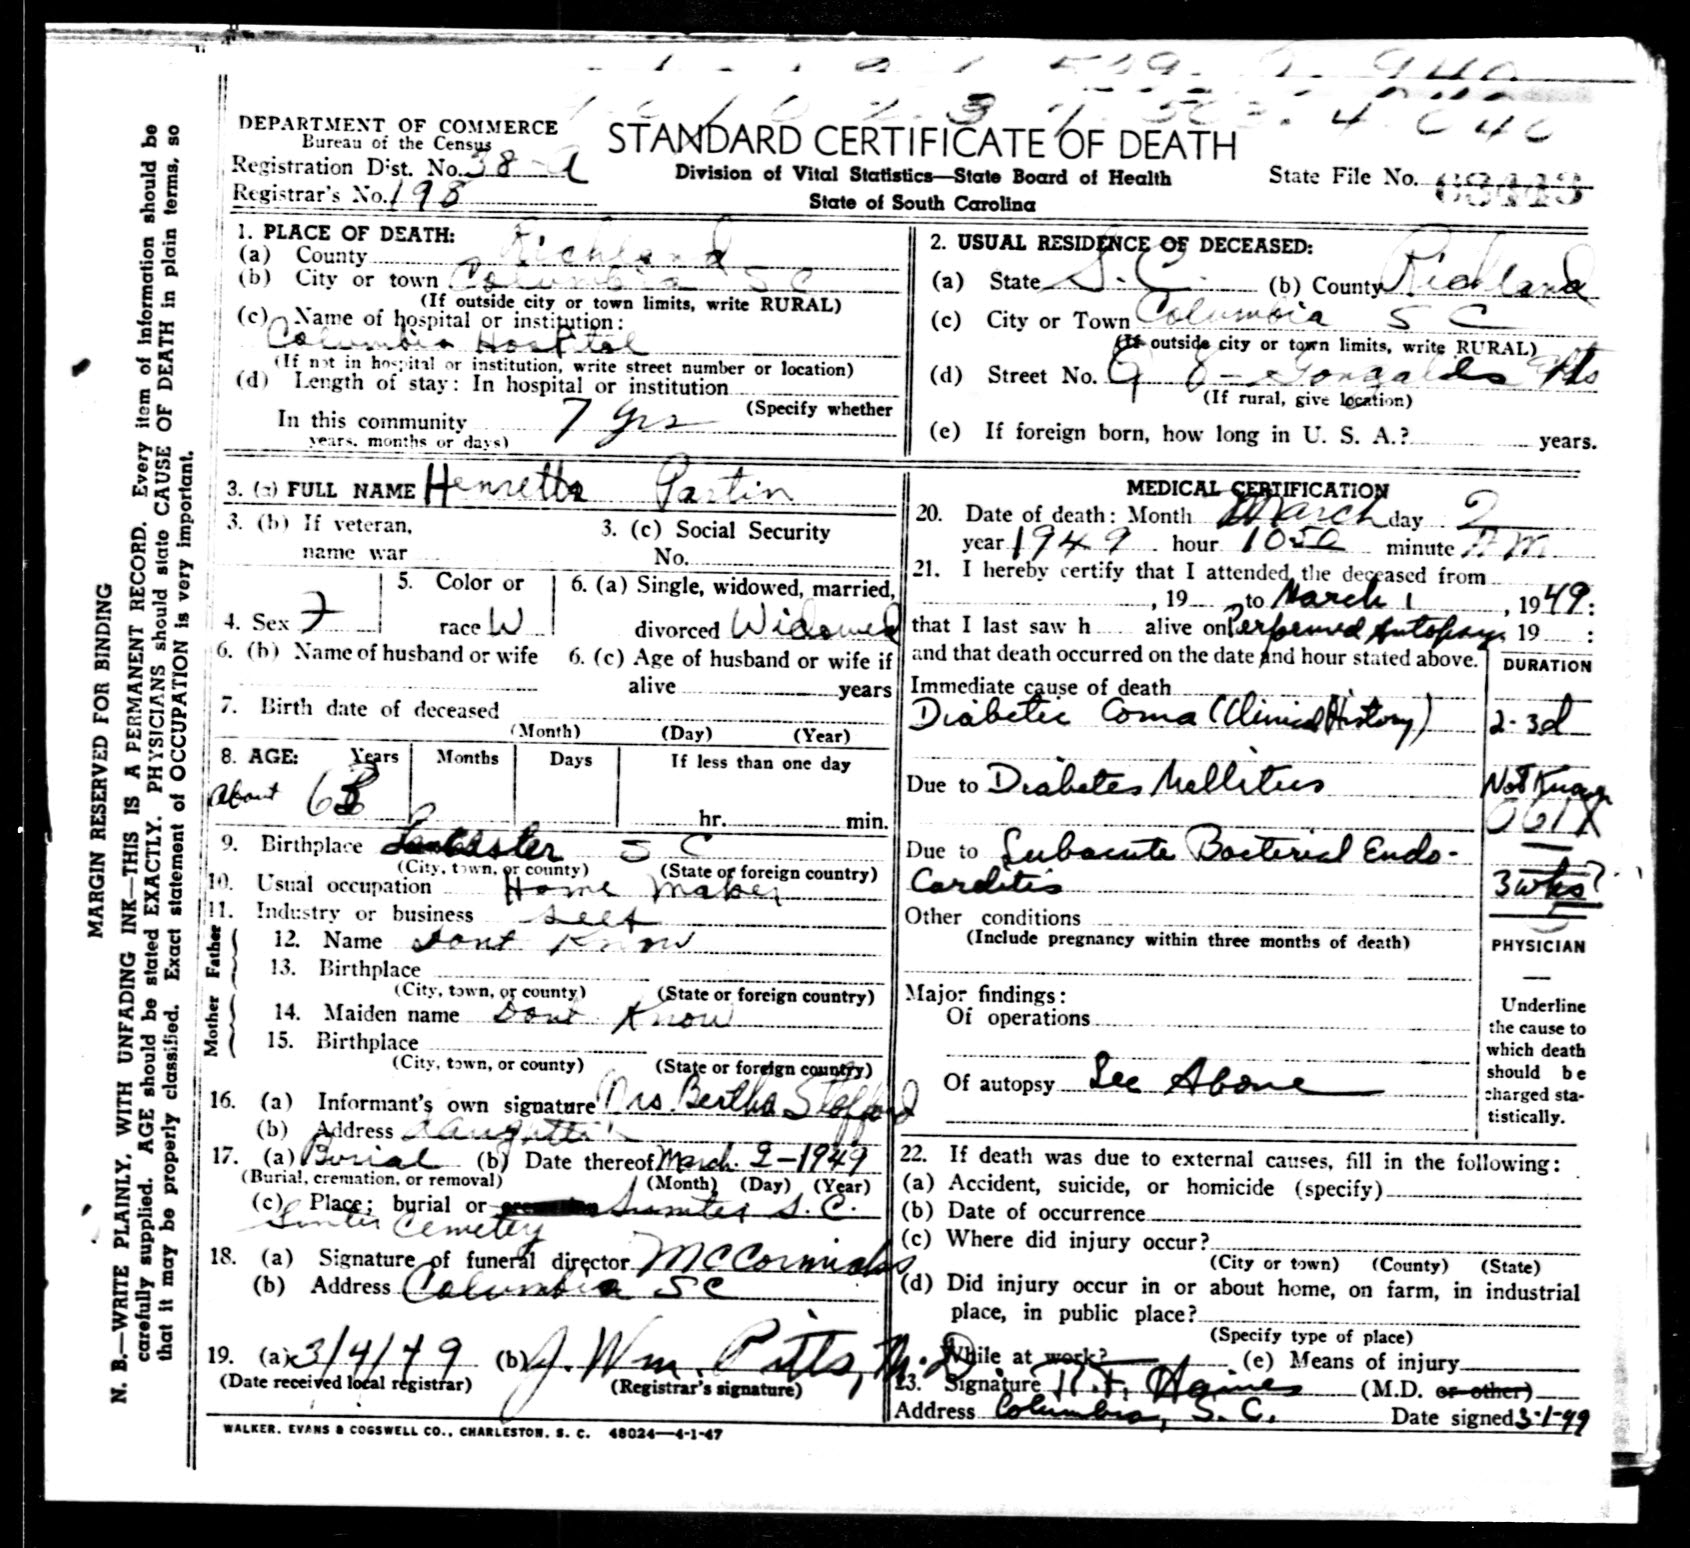 DEPARTMENT OF COMMERCE
Bureau of the Census
Registration Dist. No. 38-A
Registrar's No. 198
STANDARD CERTIFICATE OF DEATH
Division of Vital Statistics—State Board of Health
State of South Carolina
State File No.
MARGIN RESERVED FOR BINDING
N. B.—WRITE PLAINLY, WITH UNFADING INK—THIS IS A PERMANENT RECORD. Every item of information should be
carefully supplied. AGE should be stated EXACTLY. PHYSICIANS should state CAUSE OF DEATH in plain terms, so
that it may be properly classified. Exact statement of OCCUPATION is very important.
1. PLACE OF DEATH:
(a) County Richland
(b) City or town Columbia S C
(If outside city or town limits, write RURAL)
(c) Name of hospital or institution:
Columbia Hospital
(If not in hospital or institution, write street number or location)
(d) Length of stay: In hospital or institution
(Specify whether
In this community 7 yrs
years, months or days)
2. USUAL RESIDENCE OF DECEASED:
(a) State S. C. (b) County Richland
(c) City or Town Columbia S C
(If outside city or town limits, write RURAL)
(d) Street No. 9 E- Gonzales Apts
(If rural, give location)
(e) If foreign born, how long in U. S. A.? years.
3. (a) FULL NAME Henretta Partin
3. (b) If veteran, 3. (c) Social Security
name war No.
4. Sex F 5. Color or race W 6. (a) Single, widowed, married,
divorced Widowed
6. (b) Name of husband or wife 6. (c) Age of husband or wife if
alive years
7. Birth date of deceased
(Month) (Day) (Year)
8. AGE: Years Months Days If less than one day
About 63 hr. min.
9. Birthplace Lancaster S C
(City, town, or county) (State or foreign country)
10. Usual occupation Home Maker
11. Industry or business self
Father
12. Name Dont Know
13. Birthplace
(City, town, or county) (State or foreign country)
Mother
14. Maiden name Dont Know
15. Birthplace
(City, town, or county) (State or foreign country)
16. (a) Informant's own signature Mrs. Bertha Stafford
(b) Address daughter
17. (a) Burial (b) Date thereof March 2-1949
(Burial, cremation, or removal) (Month) (Day) (Year)
(c) Place; burial or cremation Sumter S. C.
Sumter Cemetery
18. (a) Signature of funeral director McCormicks
(b) Address Columbia SC
19. (a) 3/4/49 (b) J. Wm. Pitts, M.D
(Date received local registrar) (Registrar's signature)
MEDICAL CERTIFICATION
20. Date of death: Month March day 2
year 1949 hour 1050 minute
21. I hereby certify that I attended the deceased from
, 19 to March 1, 1949:
that I last saw h alive on Performed Autopsy, 19 :
and that death occurred on the date and hour stated above. DURATION
Immediate cause of death
Diabetic Coma (Clinical History) 2-3d
Due to Diabetes Mellitus Not Known
061X
Due to Subacute Bacterial Endo-
Carditis 3 wks?
Other conditions
(Include pregnancy within three months of death)
Major findings:
Of operations
Of autopsy See Above
PHYSICIAN
Underline
the cause to
which death
should be
charged sta-
tistically.
22. If death was due to external causes, fill in the following:
(a) Accident, suicide, or homicide (specify)
(b) Date of occurrence
(c) Where did injury occur?
(City or town) (County) (State)
(d) Did injury occur in or about home, on farm, in industrial
place, in public place?
(Specify type of place)
While at work? (e) Means of injury
23. Signature Haines (M.D. or other)
Address Columbia, S. C. Date signed 3-1-49
WALKER, EVANS & COGSWELL CO., CHARLESTON, S. C. 48024—4-1-47